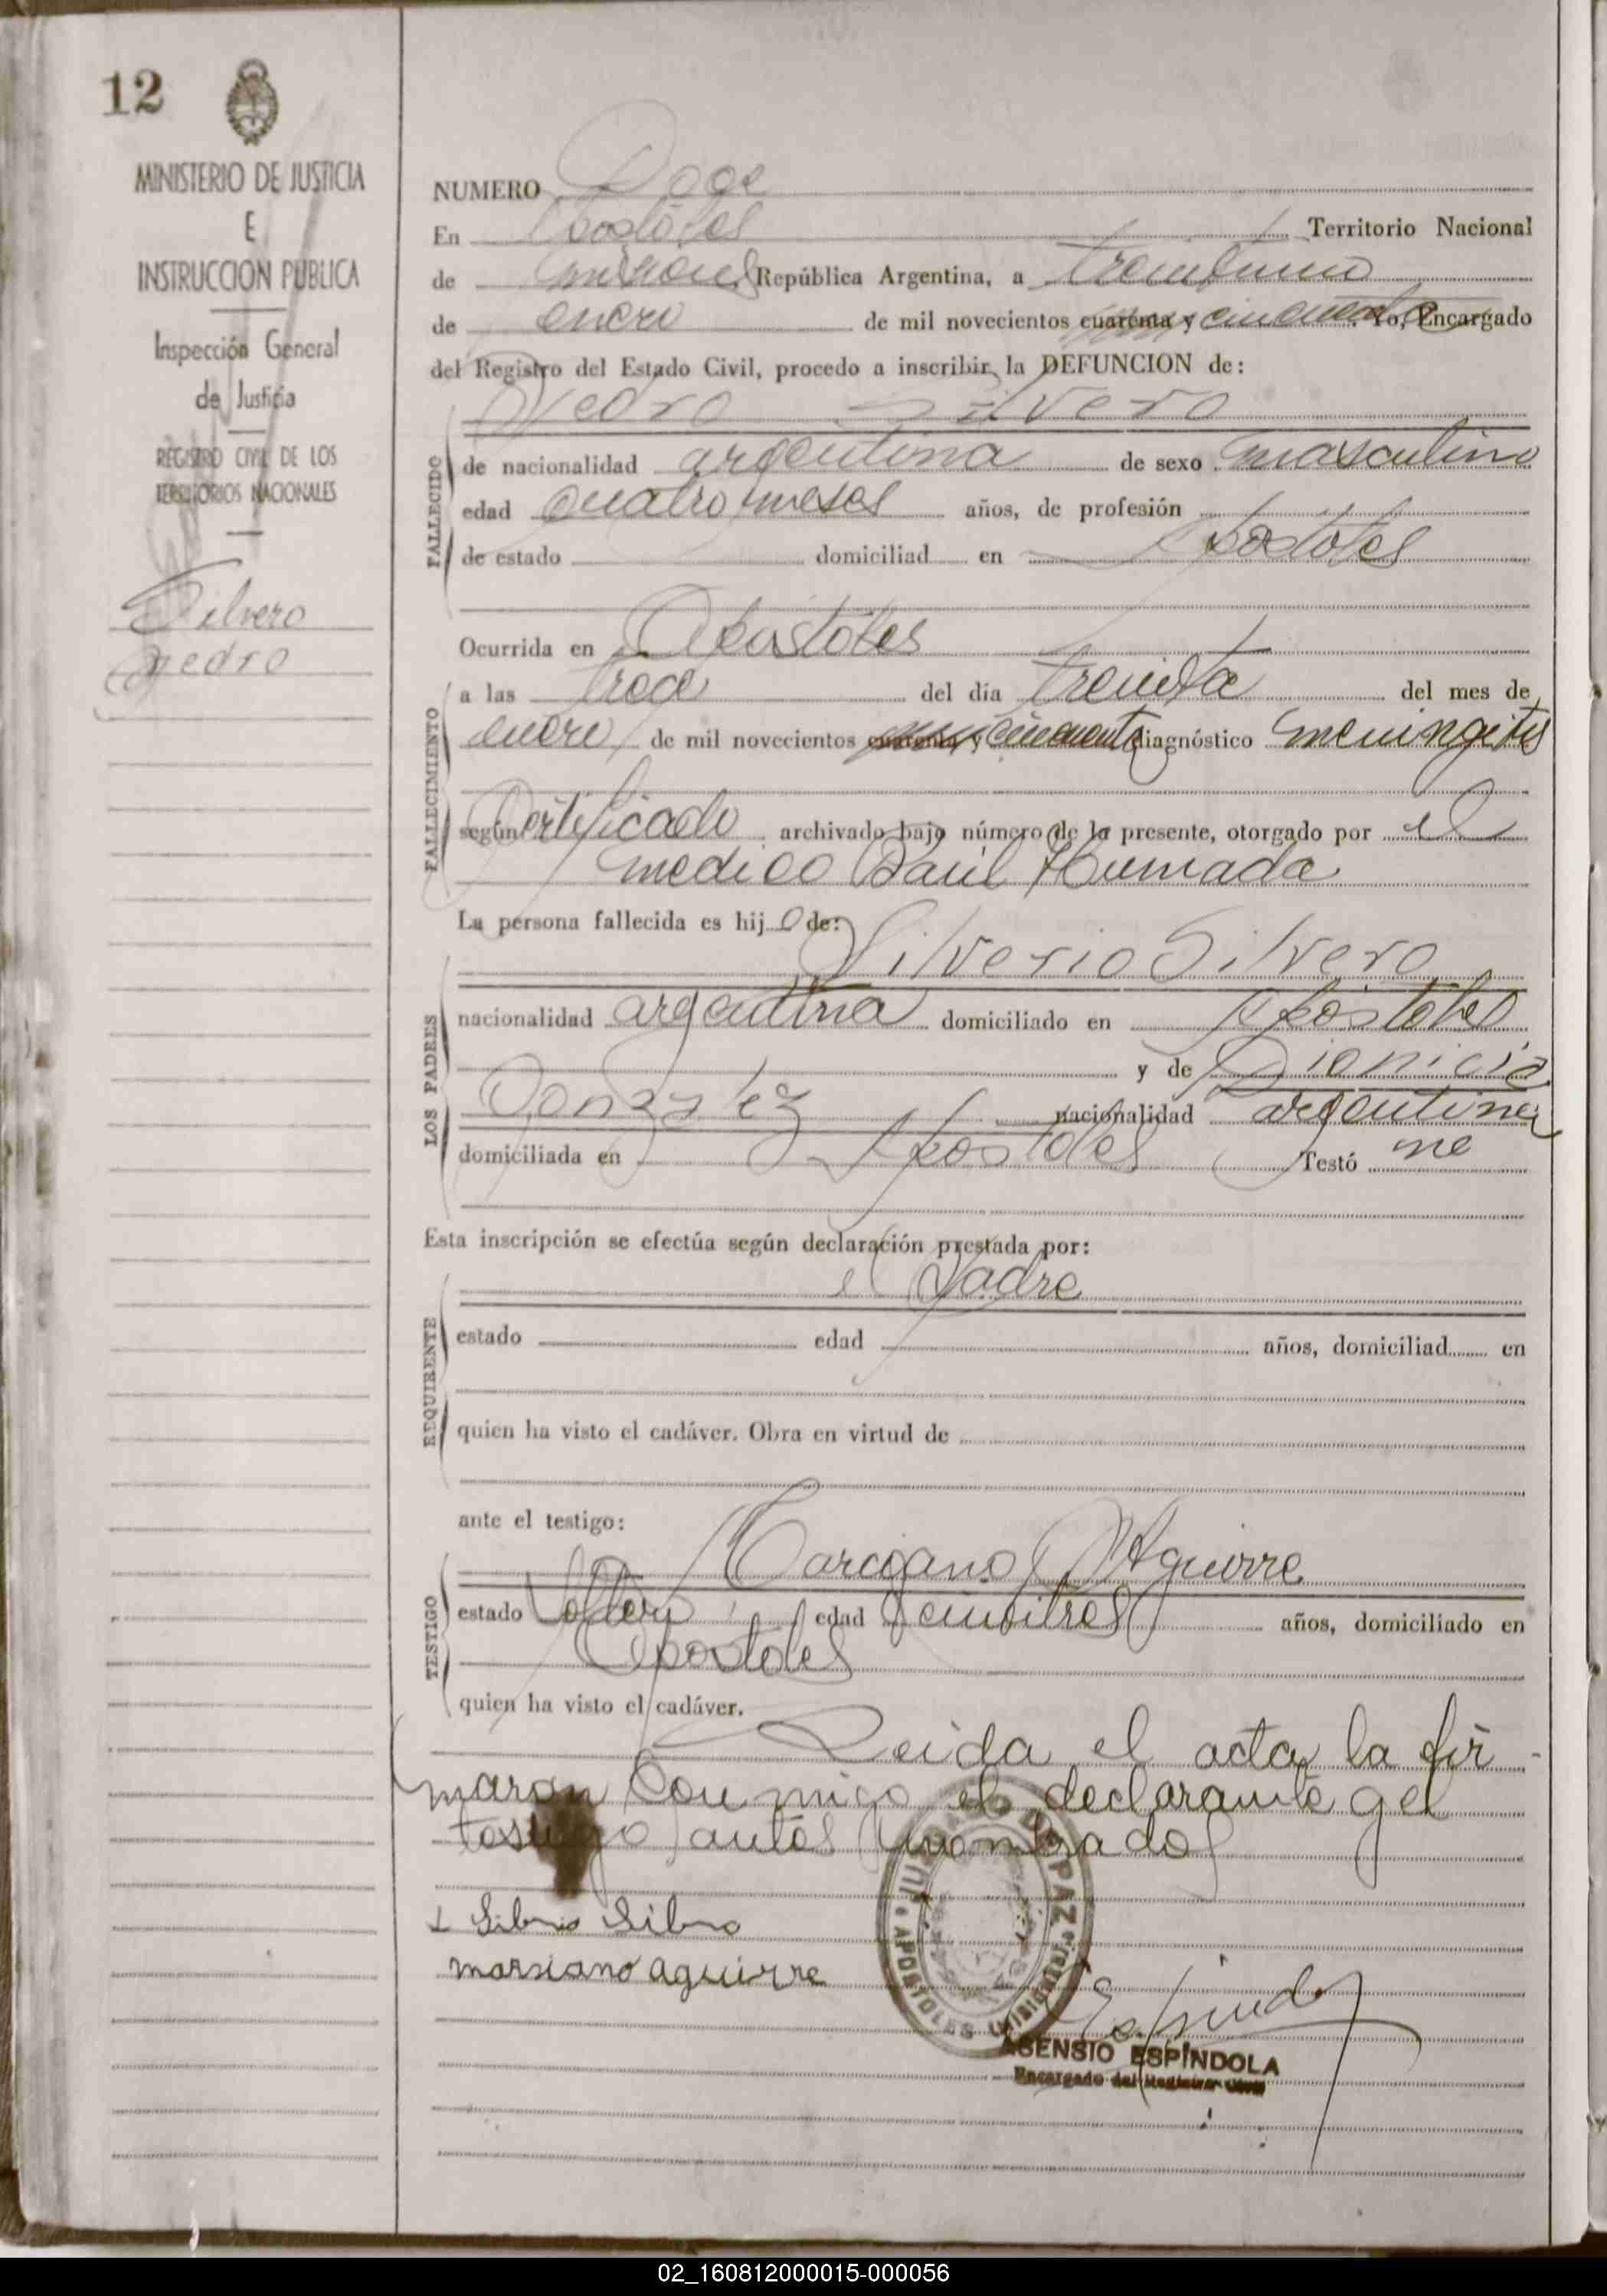 12
MINISTERIO DE JUSTICIA
E
INSTRUCCION PUBLICA
Inspección General
de Justicia
REGISTRO CIVIL DE LOS
TERRITORIOS NACIONALES
Silvero
Pedro
NUMERO Doce
En Apostoles Territorio Nacional
de Misiones República Argentina, a treintiuno
de enero de mil novecientos cuarenta y cincuenta. Yo, Encargado
del Registro del Estado Civil, procedo a inscribir la DEFUNCION de:
Pedro Silvero
FALLECIDO
de nacionalidad argentina de sexo masculino
edad cuatro meses años, de profesión
de estado domiciliad en Apostoles
Ocurrida en Apostoles
FALLECIMIENTO
a las trece del día treinta del mes de
enero de mil novecientos cuarenta y cincuenta diagnóstico meningitis
según certificado archivado bajo número de la presente, otorgado por el
medico Raúl Humada
La persona fallecida es hijo de:
Silverio Silvero
LOS PADRES
nacionalidad argentina domiciliado en Apostoles
y de Dionicia
Gonzalez nacionalidad argentina
domiciliada en Apostoles Testó no
Esta inscripción se efectúa según declaración prestada por:
el Padre
REQUIRENTE
estado edad años, domiciliad en
quien ha visto el cadáver. Obra en virtud de
ante el testigo:
Marciano Aguirre
TESTIGO
estado soltero edad veintitres años, domiciliado en
Apostoles
quien ha visto el cadáver.
Leida el acta la fir
maron conmigo el declarante y el
testigo antes nombrados
marsiano aguirre
JUZGADO DE PAZ
APOSTOLES (Misiones)
ASENSIO ESPINDOLA
Encargado del Registro Civil
02_160812000015-000056